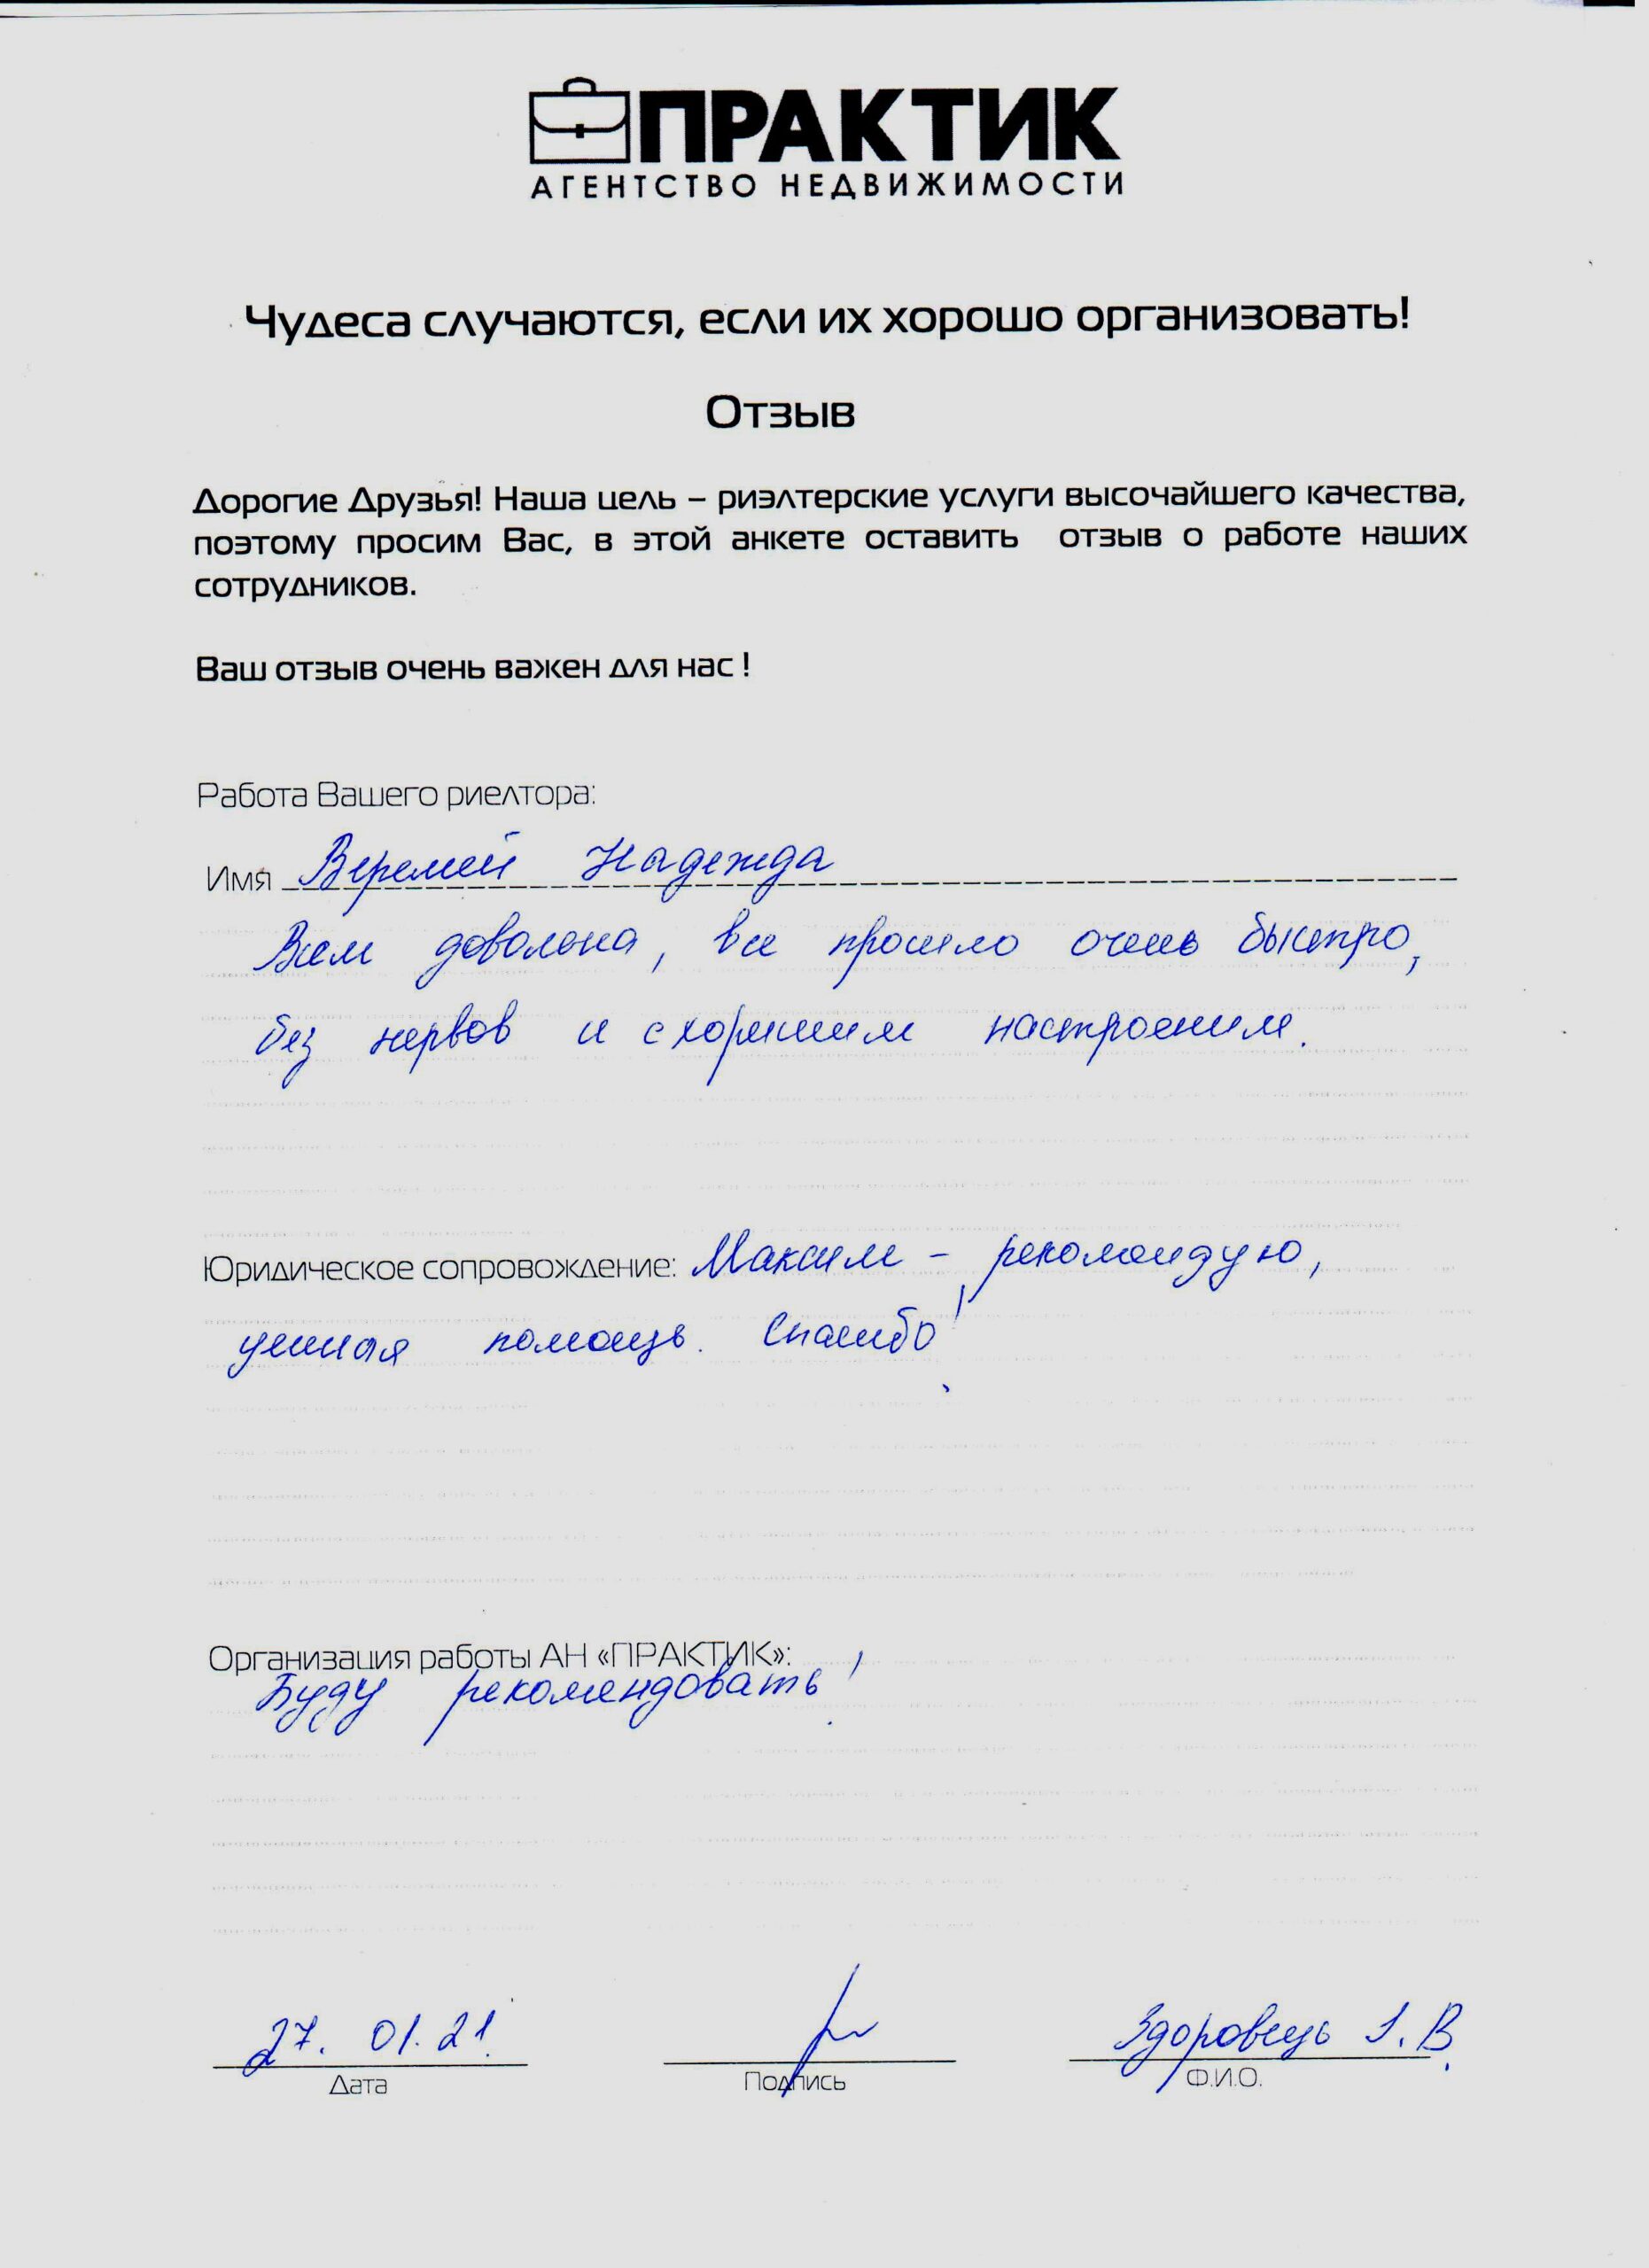 ПРАКТИК
АГЕНТСТВО НЕДВИЖИМОСТИ
Чудеса случаются, если их хорошо организовать!
Отзыв
Дорогие Друзья! Наша цель – риэлтерские услуги высочайшего качества,
поэтому просим Вас, в этой анкете оставить отзыв о работе наших
сотрудников.
Ваш отзыв очень важен для нас !
Работа Вашего риелтора:
Имя Веремей Надежда
Всем довольна, все прошло очень быстро,
без нервов и с хорошим настроением.
Юридическое сопровождение: Максим - рекомендую,
умная помощь. Спасибо!
Организация работы АН «ПРАКТИК»:
Буду рекомендовать!
27. 01. 21.
Дата
Подпись
Здоровець І. В.
Ф.И.О.